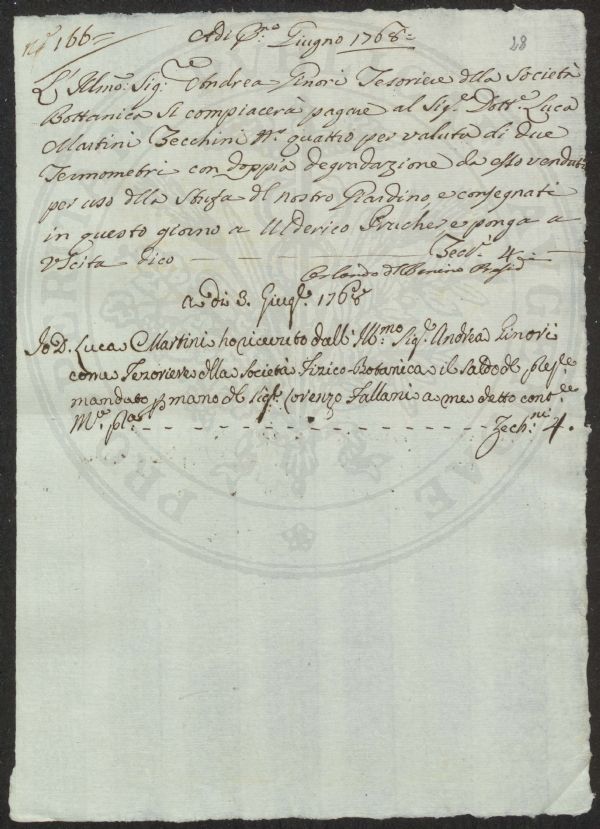 N.º 166= Adi P.mo Giugno 1768= 28
L'Illmo: Sig:re Andrea Ginori Tesoriere della Società
Bottanica si compiacerà pagare al Sig.e Dott.e Luca
Martini Zecchini N.º quattro per valuta di due
Termometri con doppia degradazione da esso venduti
per uso della Stufa del nostro Giardino, e consegnati
in questo giorno a Ulderico Prucher, e ponga a
Uscita dico Zecc.i 4=
Orlando del Benino
a di 3. Giug.o 1768
Io D. Luca Martini ho ricevuto dall'Ill.mo Sig.e Andrea Ginori
come Tesoriere della Società Fizico-Botanica il saldo del
mandato p mano del Sig.e Lorenzo Fallani a me detto cont.e
M.o p.a Zech.ni 4.